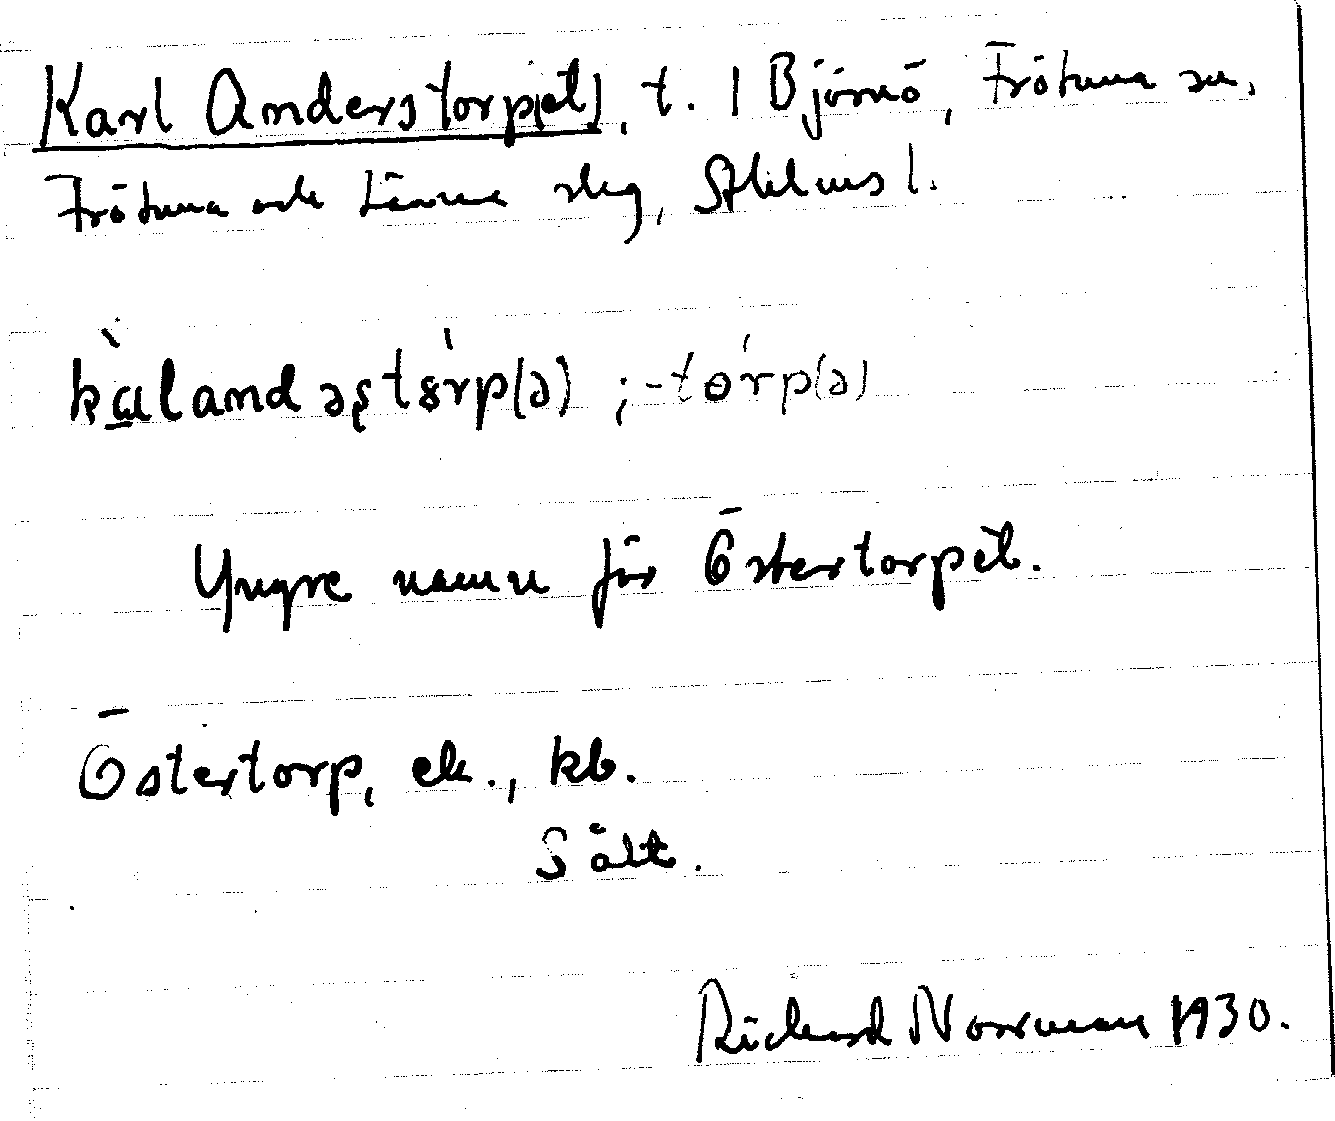 Karl Anderstorp(et), t. l Björnö, Frötuna sn,
Frötuna och Länna slag, Sthlms l.
kàlandəʂtɵ́rp(ə) ; -tɵ́rp(ə)
Yngre namn för Östertorpet.
Östertorp, ek., kb.
Sält.
Richard Norrman 1930.